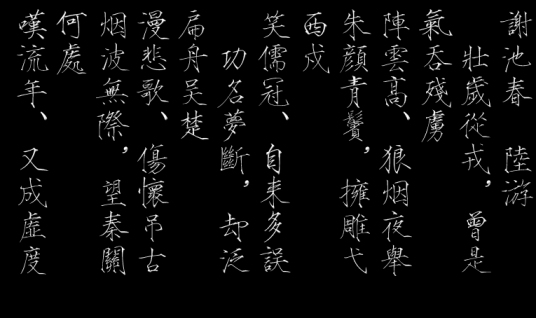 謝池春　陸游
壯歲從戎，曾是
氣吞殘虜
陣雲高、狼烟夜舉
朱顏青鬢，擁雕戈
西戍
笑儒冠、自來多誤
功名夢斷，却泛
扁舟吳楚
漫悲歌、傷懷吊古
烟波無際，望秦關
何處
嘆流年、又成虛度